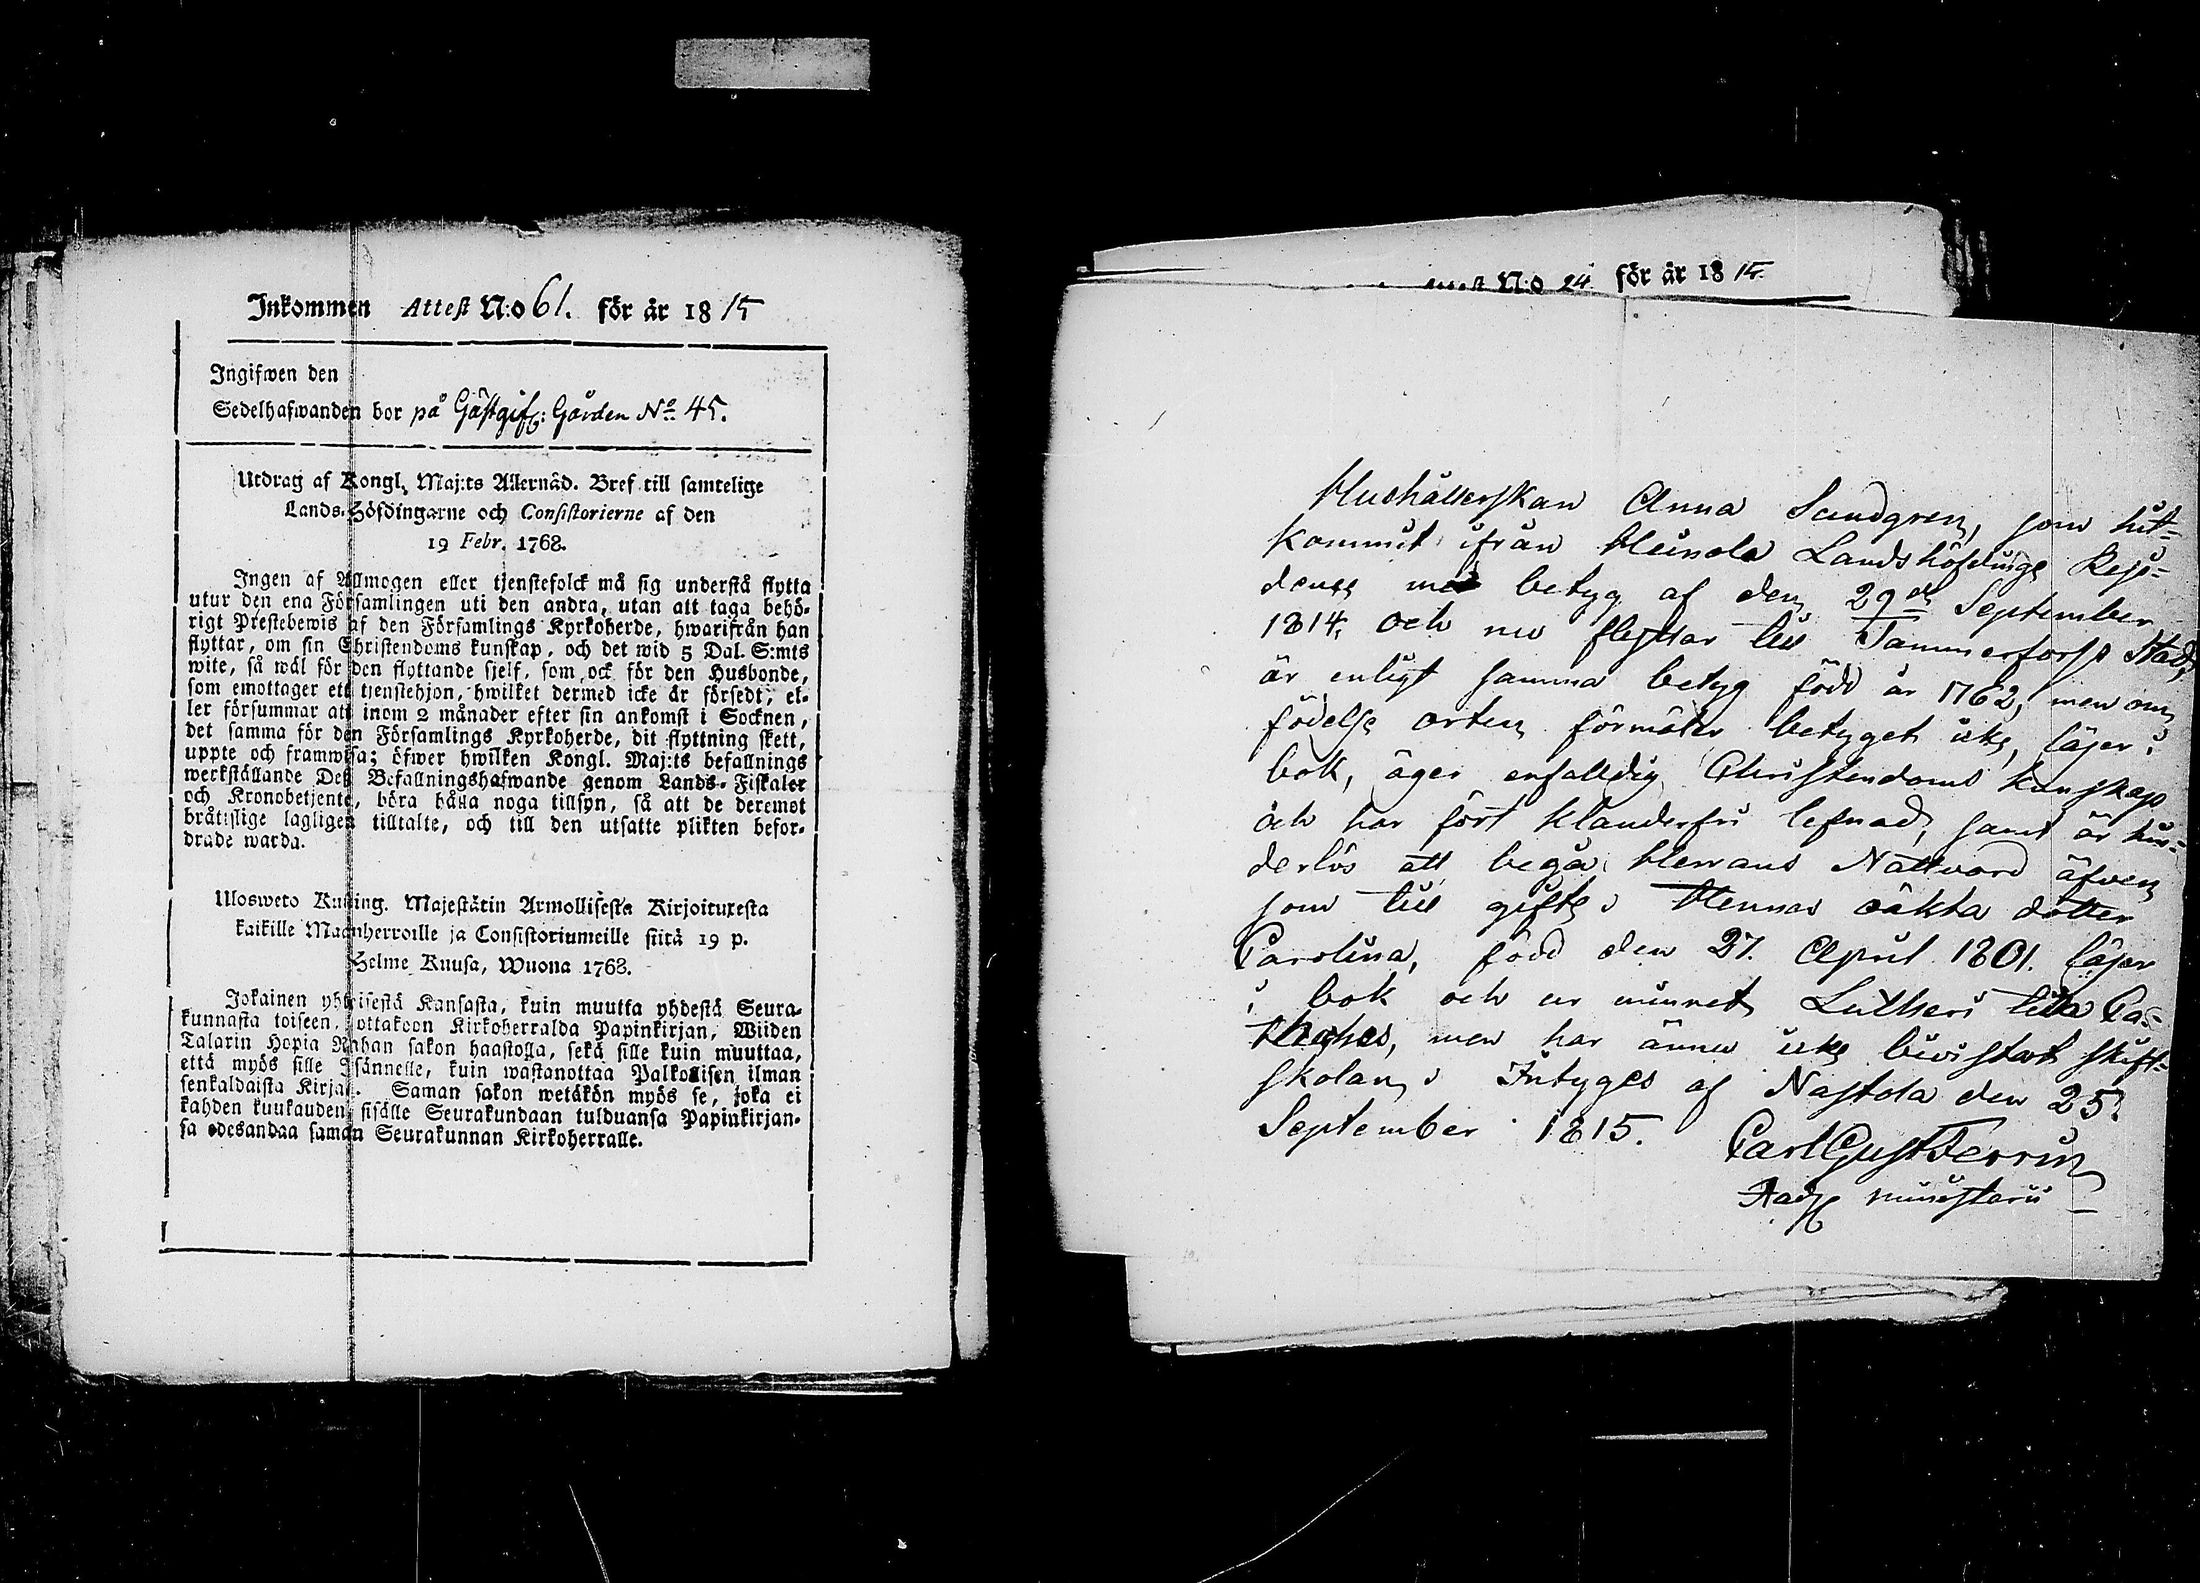 Inkommen Attest N:o 61. för år 1815
Ingifwen den
Sedelhafwanden bor på Gästgif: Gården No 45.
Utdrag af Kongl. Maj:ts Allernåd. Bref till samtelige
Lands-Höfdingarne och Consistorierne af den
19 Febr. 1768.
Ingen af Allmogen eller tjenstefolck må sig understå flytta
utur den ena Församlingen uti den andra, utan att taga behö-
rigt Prestebewis af den Församlings Kyrkoherde, hwarifrån han
flyttar, om sin Christendoms kunskap, och det wid 5 Dal. S:mts
wite, så wäl för den flyttande sjelf, som ock för den Husbonde,
som emottager ett tjenstehjon, hwilket dermed icke är försedt, el-
ler försummar att inom 2 månader efter sin ankomst i Socknen,
det samma för den Församlings Kyrkoherde, dit flyttning skett,
uppte och framwisa; öfwer hwilken Kongl. Maj:ts befallnings
werkställande Deß Befallningshafwande genom Lands-Fiskaler
och Kronobetjente, böra hålla noga tillsyn, så att de deremot
brätislige lagligen tilltalte, och till den utsatte plikten befor-
drade warda.
Ulosweto Kuning. Majestätin Armollisesta Kirjoituxesta
kaikille Maanherroille ja Consistoriumeille siitä 19 p.
Helme Kuusa, Wuona 1768.
Jokainen yhteisestä Kansasta, kuin muutta yhdestä Seura-
kunnasta toiseen, ottakoon Kirkoherralda Papinkirjan, Wiiden
Talarin Hopia Rahan sakon haastolla, sekä sille kuin muuttaa,
että myös sille Isännelle, kuin wastanottaa Palkollisen ilman
senkaldaista Kirjaa. Saman sakon wetäkön myös se, joka ei
kahden kuukauden sisälle Seurakundaan tulduansa Papinkirjan-
sa edesandaa saman Seurakunnan Kirkoherralle.
N:o 24 för år 1815.
Hushållerskan Anna Sandgren, som hit-
kommit ifrån Heinola Landshöfdinge Resi-
dence med betyg af den 29de September
1814, och nu flyttar till Tammerforss Stad,
är enligt samma betyg född år 1762, men om
födelse orten förmäler betyget icke, läser i
bok, äger enfalldig Christendoms kunskap
och har fört klanderfri lefnad, samt är hin-
derlös att begå Herrans Nattvard äfven
som till gifte. Hennes oäkta dotter
Carolina, född den 27. April 1801. läser
i bok och ur minnet Lutheri lilla Ca-
theches, men har ännu icke bivistat skrift-
skolan. Intygas af Nastola den 25.
September 1815.
Carl Gust Ferrin
Adj. ministerii